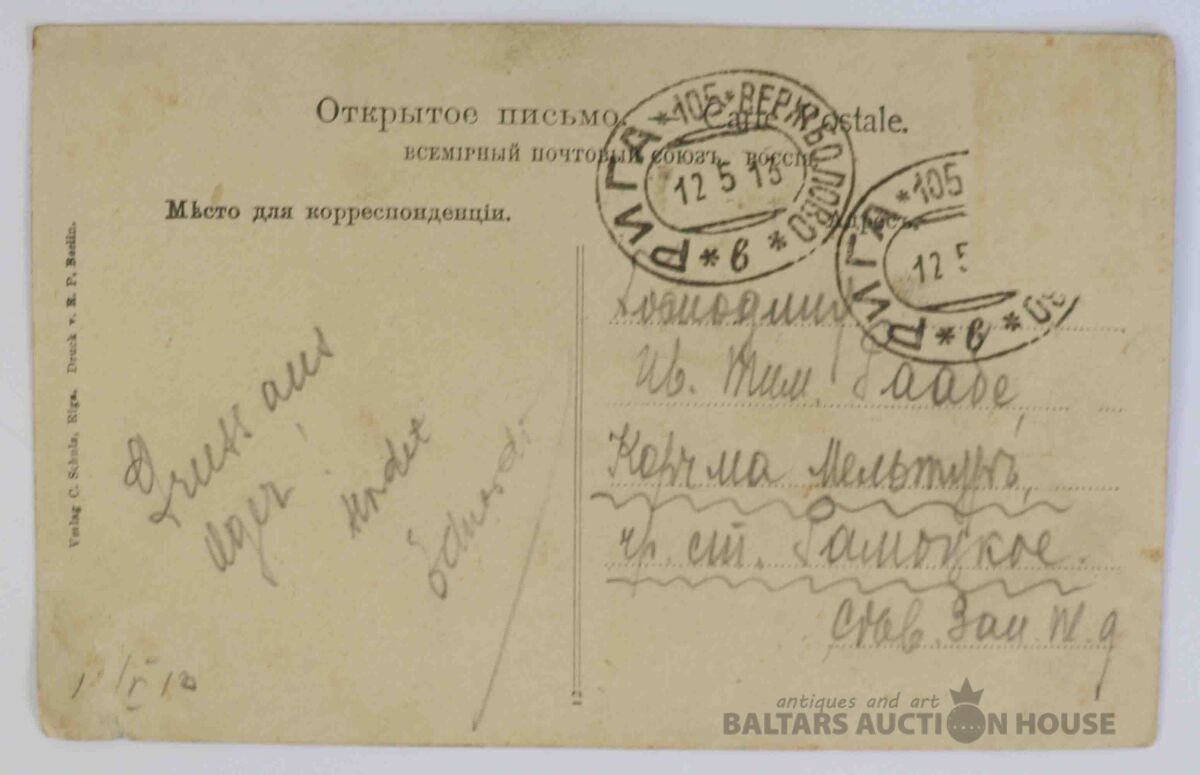 Открытое письмо. Carte Postale.
ВСЕМІРНЫЙ ПОЧТОВЫЙ СОЮЗЪ. РОССІЯ.
Мѣсто для корреспонденціи.
Адресъ.
РИГА *105* ВЕРЖБОЛОВО * в *
12 5 13
РИГА *105
12 5
ОВО * в *
Verlag C. Schulz, Riga. Druck v. R. P. Berlin.
Gruss aus
sendet
Eduard
Господину
Ив. Тим. Раабе,
Корчма Мельтуръ,
чр. ст. Рамоцкое.
Сѣв. Зап ж. д
12
antiques and art
BALTARS AUCTION HOUSE